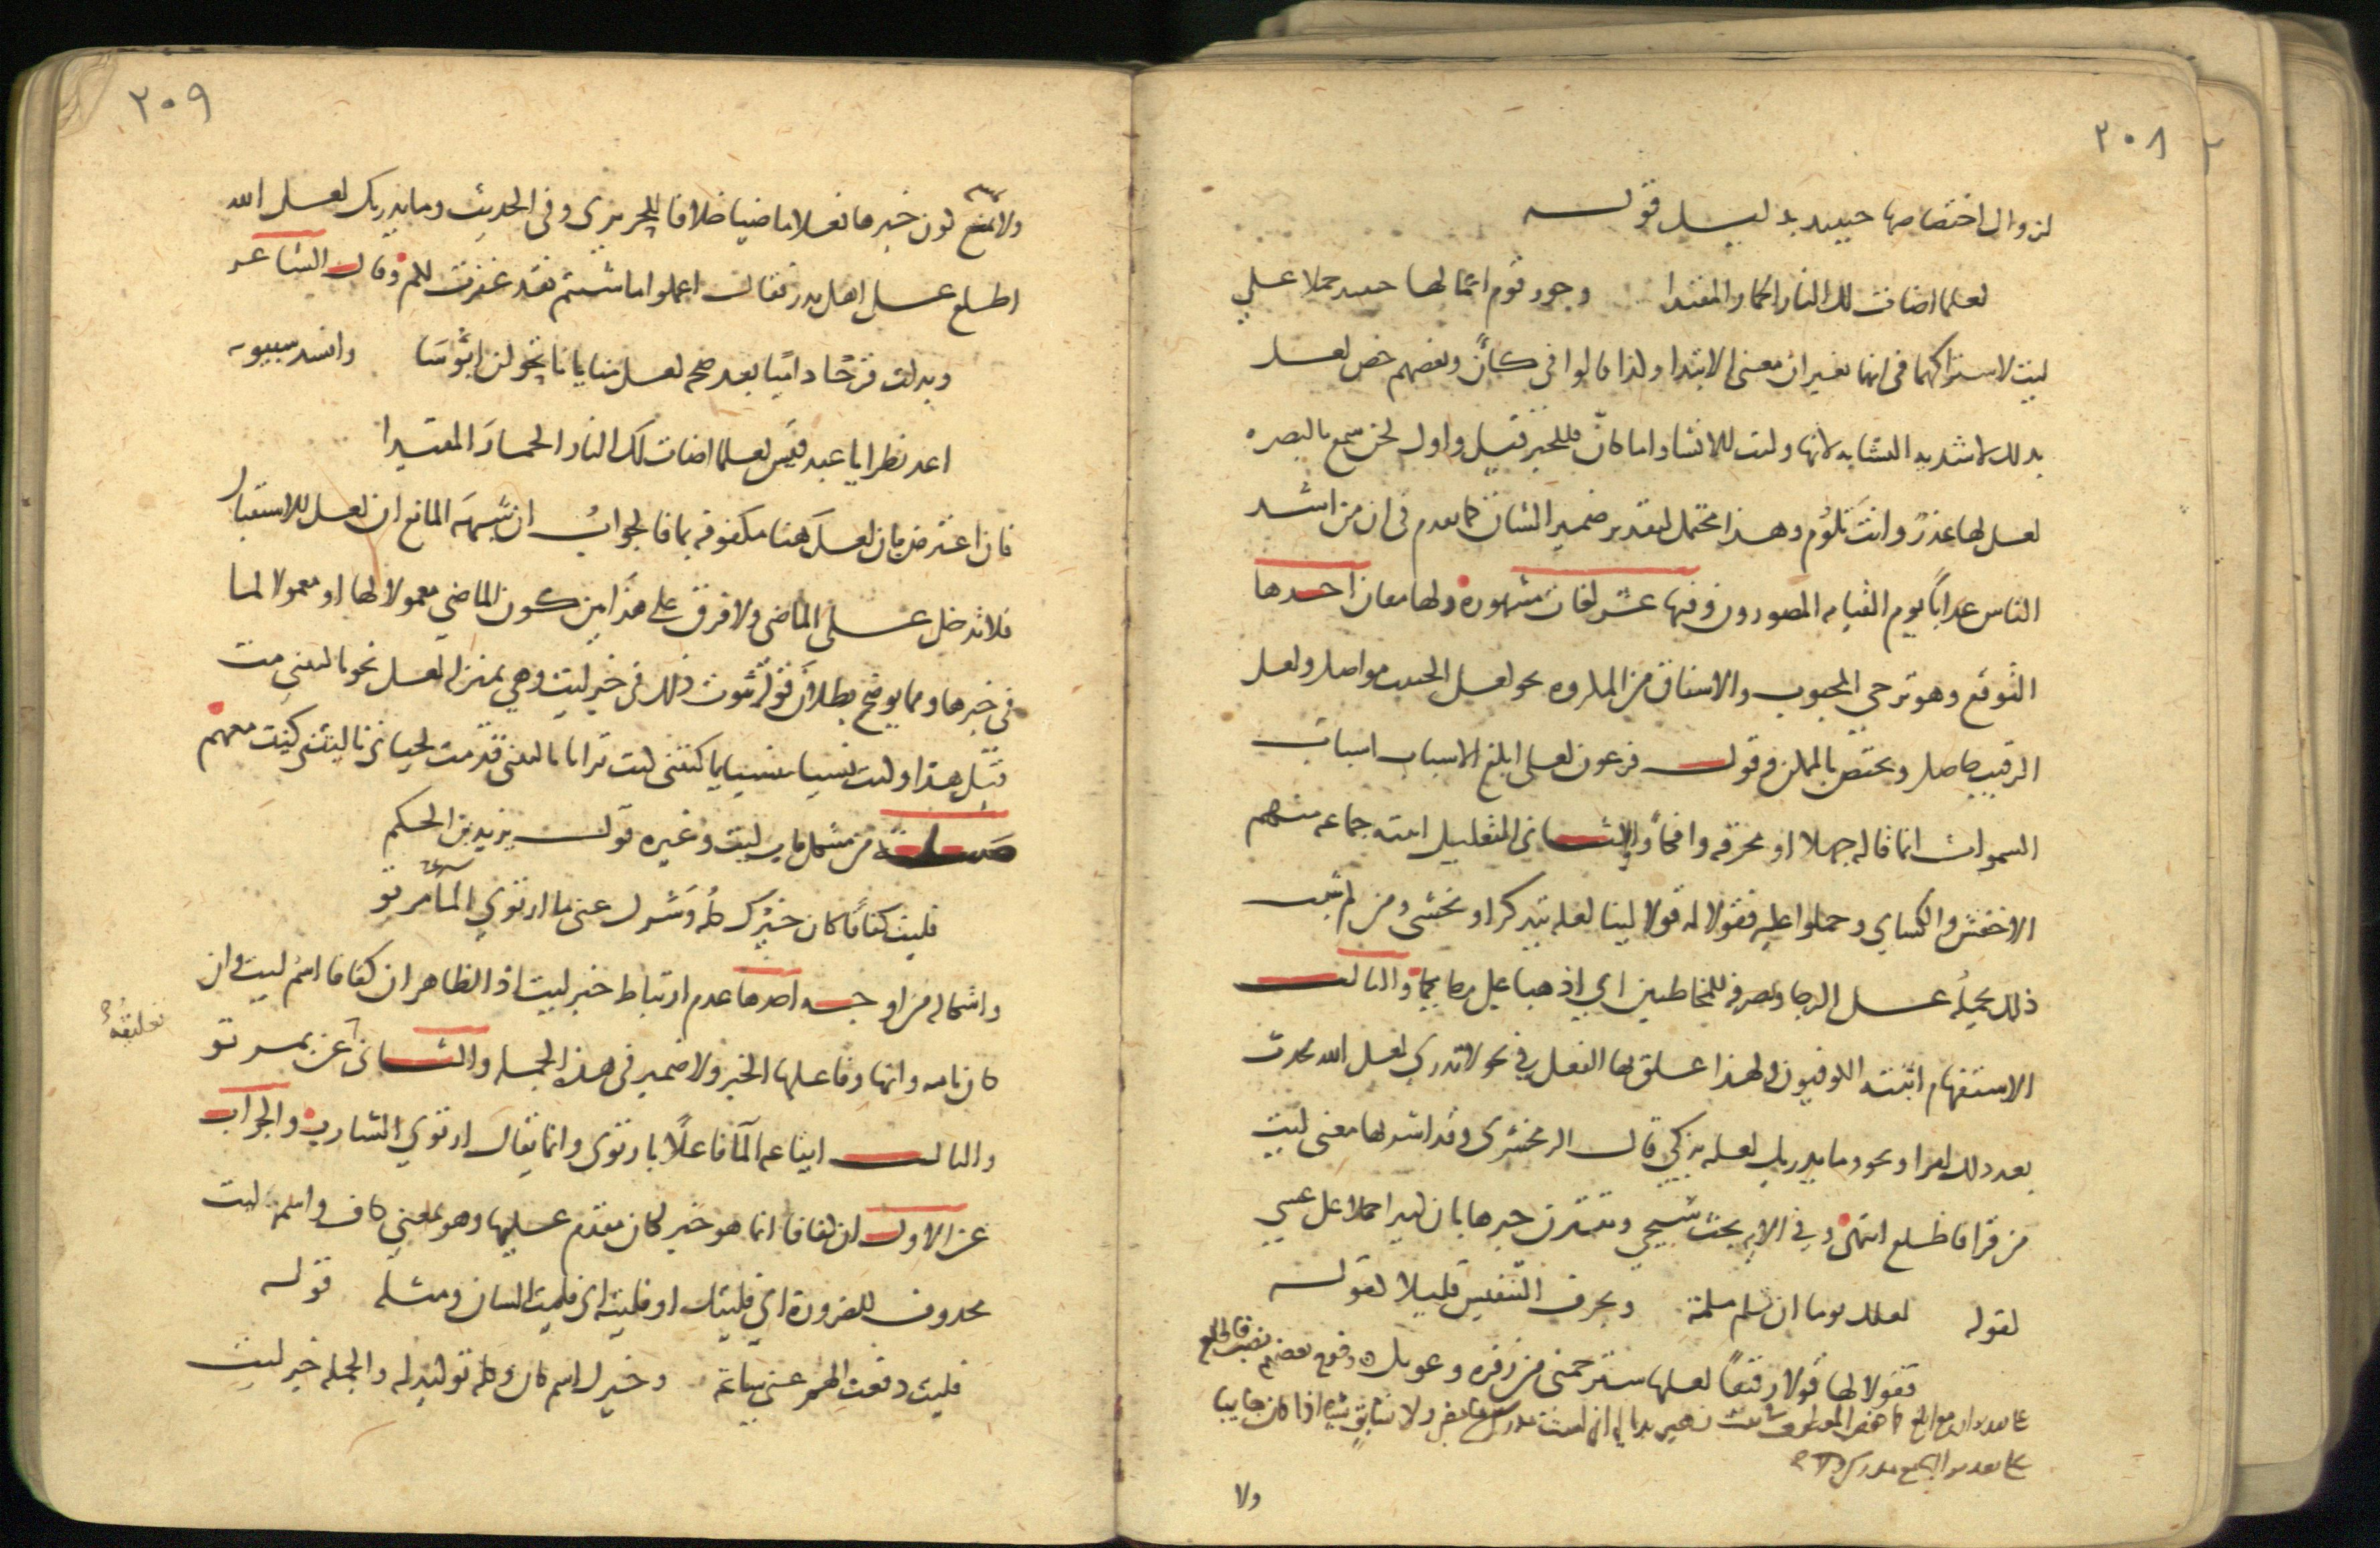 ٢٠٨
لزوال اختصاصها حينئذ بدليل قوله
لعلما اضاءت لك النار الحمار المقيدا وجوز قوم اعمالها حينئذ حملا علي
ليت لاشتراكهما في انهما يغيران معنى الابتدا ولذا قالوا في كأنّ وبعضهم خص لعل
بذلك لاشديه التشابه لانها وليت للانشا واما كانّ فللخبر قيل واول لحن سمع بالبصره
لعل لها عذرٌ وانتَ تلوُم وهذا محتمل لتقدير ضمير الشان كما تقدم في ان من اشد
الناس عذاباً يوم القيامه المصورون وفيها عشر لغات مشهوره ولها معان احدها
التوقع وهو ترجي المحبوب والاشفاق من المكروه نحو لعل الحبيب مواصل ولعل
الرقيب حاصل ويختص بالممكن وقول فرعون لعلى ابلغ الاسباب اسباب
السموات انما قاله جهلا او مخرقه وافكاً والثانى التعليل اثبته جماعه منهم
الاخفش والكساي وحملوا عليه فقولا له قولا لينا لعله يتذكر او يخشى ومن لم يثبت
ذلك يحملهُ على الرجا ويصرفه للمخاطبين اي اذهبا على رجايكما والثالث
الاستفهام اثبته الكوفيون ولهذا علق بها الفعل في نحو لا تدري لعل الله يحدث
بعد ذلك امرا ونحو وما يدريك لعله يزكي قال الزمخشرى وقد اشربها معنى ليت
من قرا فاطلع انتهى وفي الايه بحث سيجي وتقترن خبرها بان كثيرا حملا على عسي
لقوله لعلك يوما ان تلم ملمة وبحرف التنفيس قليلا لقوله
فقولا لها قولا رقيقًا لعلها سترحمنى من زفره وعويل وخرج بعضهم نصب فاطلع
على تقدير ان مع ابلغ كما خفض المعطوف من بيت زهير بدا لي اني لست مدرك ما مضى ولا سابقٍ شيا اذا كان جاييا
على تقدير البا مع مدرك
ولا
٢٠٩
ولا يمتنع كون خبرها فعلا ماضيا خلافا للحريرى وفى الحديث وما يدريك لعل الله
اطلع على اهل بدر فقال اعملوا ما شيتم فقد غفرت لكم وقال الشاعر
وبدلت قرحًا داميًا بعد صحه لعل منايانا تحولن ابؤسَا وانشد سيبويه
اعد نظرا يا عبد قيس لعلما اضاءت لكَ النار الحمارَ المقيدا
فان اعترض بان لعل هنا مكفوفه بما فالجوابُ ان شبهه المانع ان لعل للاستقبال
فلا تدخل على الماضى ولا فرق على هذا بين كون الماضي معمولا لها او معمولا لما
في خبرها ومما يوضح بطلان قوله ثبوت ذلك في خبر ليت وهي بمنزله لعل نحو يا ليتني مت
قبل هذا وكنت نسيا منسيا يا ليتنى كنت ترابا يا ليتنى قدمت لحياتى يا ليتنى كنت معهم
مسالة من مشكل باب ليت وغيره قول يزيد بن الحكم
فليت كفافًا كان خيرُك كلهُ وشرك عنى ما ارتوي الماَ مرتو
واشكاله من اوجه احدها عدم ارتباط خبر ليت اذ الظاهر ان كفافا اسمُ ليت وان
كان تامه وانها وفاعلها الخبر ولا ضمير في هذه الجمله والثانى عن بمرتو
تعليقهُ
والثالث ايقاعه الما فاعلًا بارتوى وانما يقال ارتوي الشارب والجواب
عن الاول ان كفافا انما هو خبر لكان مقدم عليها وهو بمعنى كاف واسم ليت
محذوف للضرورة اي فليتك او فليته اي فليت الشان ومثله قوله
فليت دفعت الهم عنى ساعة وخيرك اسم كان وكله توكيد له والجمله خبر ليت